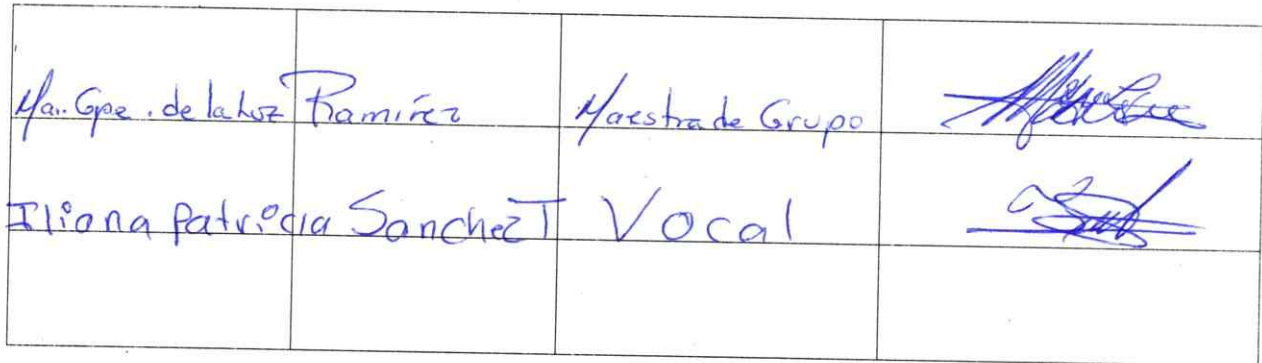 Ma. Gpe. de la Luz Ramírez Maestra de Grupo
Iliana Patricia Sanchez T Vocal